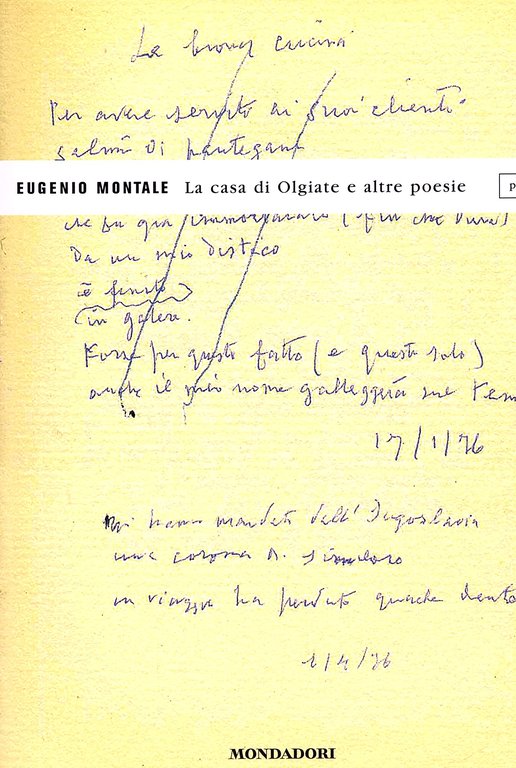 La buona cucina
Per avere servito ai suoi clienti
salmì di pantegana
EUGENIO MONTALE La casa di Olgiate e altre poesie
che fu già immortalato (fin che dura)
Da un mio distico
è finito
in galera.
Forse per questo fatto (e questo solo)
anche il mio nome galleggerà sul tem
17/1/76
Mi hanno mandato dall'Jugoslavia
una corona di similoro
in viaggio ha perduto qualche dente
1/4/76
MONDADORI